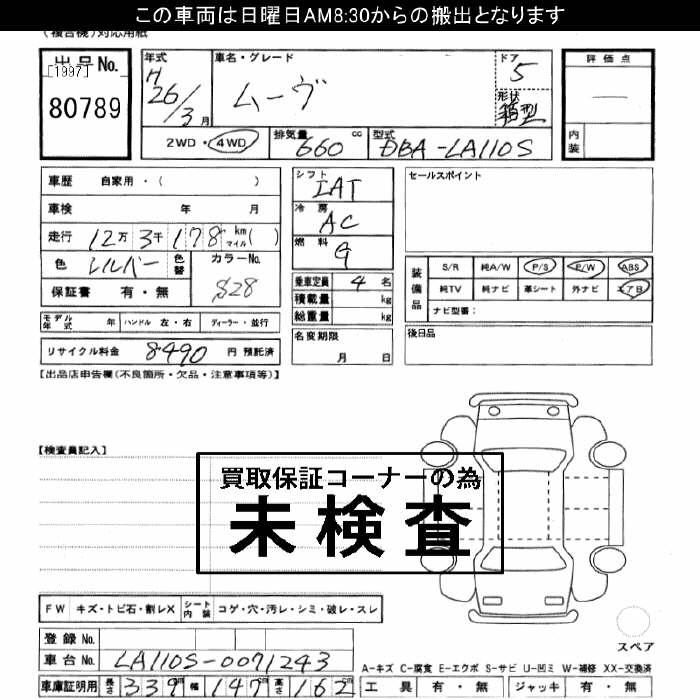 この車両は日曜日AM8:30からの搬出となります
(複合機)対応用紙
出品No. [1997] 80789
年式 H26/3月
車名・グレード ムーヴ
ドア 5
形状 箱型
2WD・4WD
排気量 660 cc
型式 DBA-LA110S
評価点 —
内装
車歴 自家用・( )
車検 年 月
走行 12万3千178 km マイル( )
色 シルバー 色替 カラーNo. S28
保証書 有・無
モデル年式 年 ハンドル 左・右 ディーラー・並行
リサイクル料金 8490 円 預託済
シフト IAT
冷房 AC
燃料 G
乗車定員 4 名
積載量 kg
総重量 kg
名変期限 月 日
セールスポイント
装備品 S/R 純A/W P/S P/W ABS
純TV 純ナビ 革シート 外ナビ エアB
ナビ型番:
後日品
【出品店申告欄(不良箇所・欠品・注意事項等)】
【検査員記入】
買取保証コーナーの為
未検査
FW キズ・トビ石・割レX シート内装 コゲ・穴・汚レ・シミ・破レ・スレ
スペア
登録No.
車台No. LA110S-0071243
A-キズ C-腐食 E-エクボ S-サビ U-凹ミ W-補修 XX-交換済
車庫証明用 長さ 339cm 幅 147cm 高さ 162
工具 有・無 ジャッキ 有・無